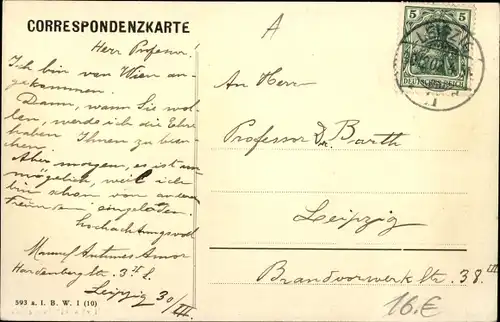 CORRESPONDENZKARTE
A
Herr Professor!
Ich bin von Wien an-
gekommen.
Dann, wann Sie wol-
len, werde ich die Ehre
haben Ihnen zu besu-
chen.
Aber morgen, es ist un-
möglich, weil ich
bin schon von anderen
Freunde eingeladen.
Hochachtungsvoll
Manuel Antunes Amor
Hardenbergstr. 3 II l.
Leipzig 30/III.
593 a. I. B. W. I (10)
5 5
DEUTSCHES REICH
LEIPZIG
An Herr
Professor Dr. Barth
Leipzig
Brandvorwerkstr. 38 III
16.€